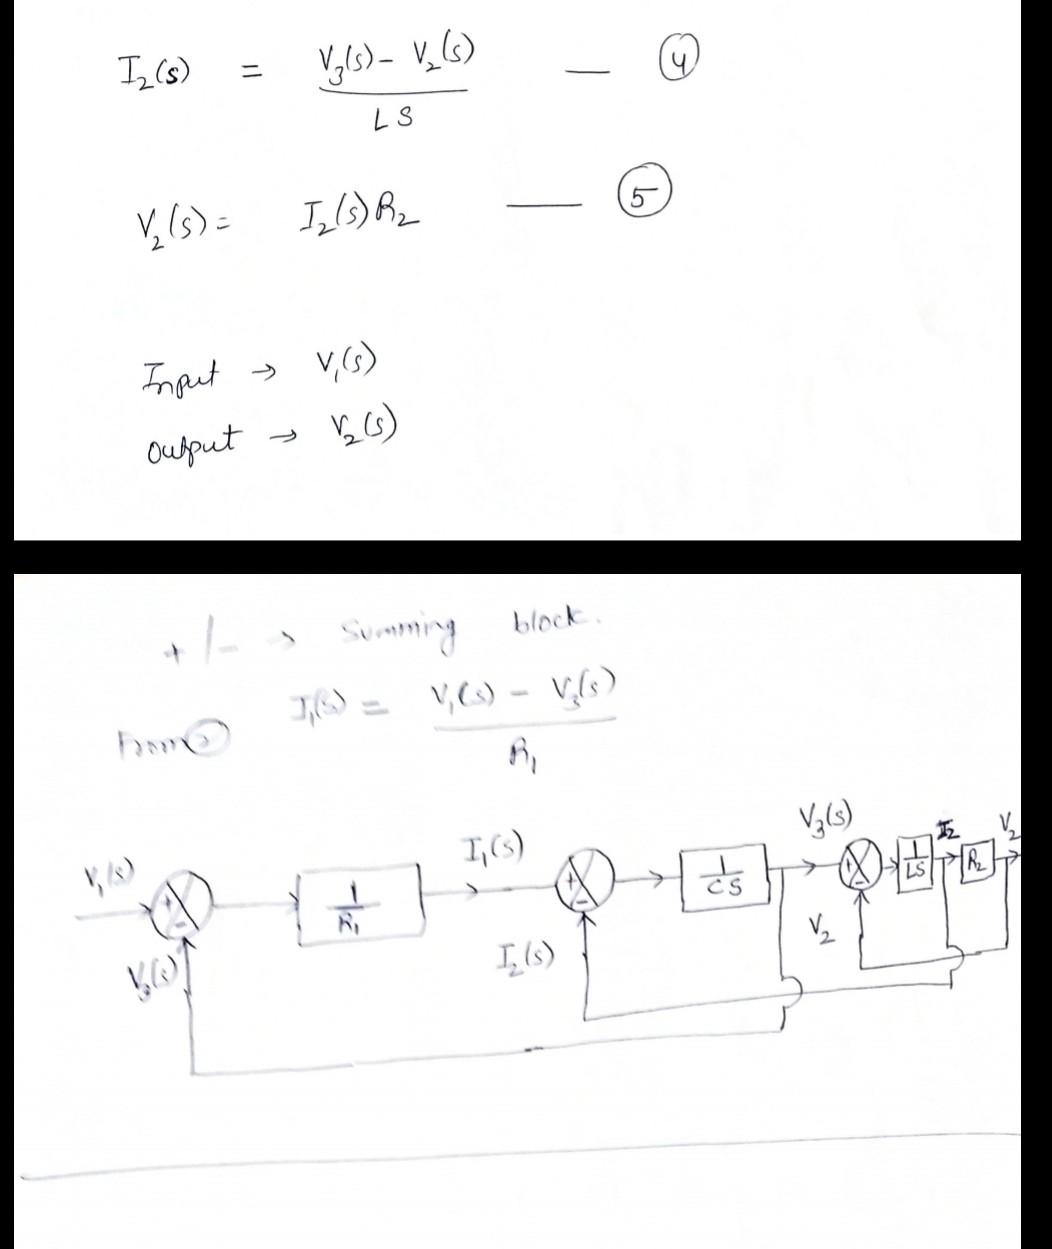 I₂(s) = (V₃(s) - V₂(s)) / LS — ④
V₂(s) = I₂(s) R₂ — ⑤
Input → V₁(s)
Output → V₂(s)
+/- → Summing block.
From ② I₁(s) = (V₁(s) - V₃(s)) / R₁
V₃(s) I₂ V₂
V₁(s) + - 1/R₁ I₁(s) + - 1/CS + - 1/LS R₂
V₃(s) I₂(s) V₂